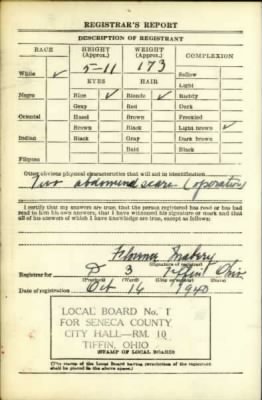 REGISTRAR'S REPORT
DESCRIPTION OF REGISTRANT
RACE HEIGHT (Approx.) WEIGHT (Approx.) COMPLEXION
White ✓ 5-11 173 Sallow
EYES HAIR Light
Negro Blue ✓ Blonde ✓ Ruddy
Gray Red Dark
Oriental Hazel Brown Freckled
Brown Black Light brown ✓
Indian Black Gray Dark brown
Bald Black
Filipino
Other obvious physical characteristics that will aid in identification
Two scars (operation)
I certify that my answers are true; that the person registered has read or has had
read to him his own answers; that I have witnessed his signature or mark and that
all of his answers of which I have knowledge are true, except as follows:
Florence
(Signature of registrar)
Registrar for D 3 Tiffin Ohio
Date of registration Oct 16 1940
LOCAL BOARD No. 1
FOR SENECA COUNTY
CITY HALL—RM. 10
TIFFIN, OHIO
STAMP OF LOCAL BOARD
(The stamp of the Local Board having jurisdiction of the registrant
shall be placed in the above space.)